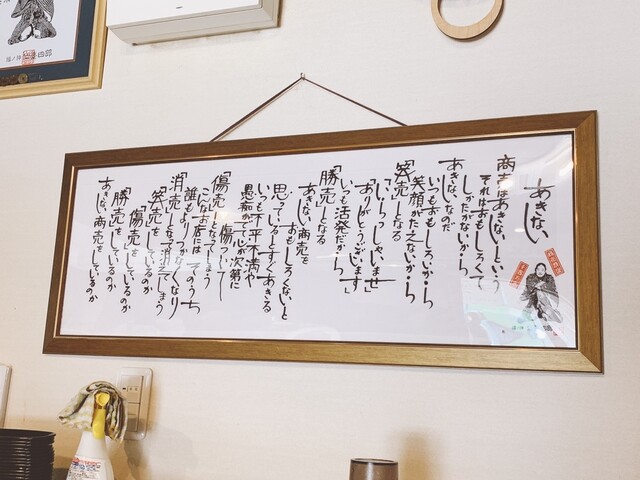 あきない
商売はあきないという
それはおもしろくて
しかたがないから
あきないなのだ
いつもおもしろいから
笑顔がたえないから
「笑売」となる
「いらっしゃいませ」
「ありがとうございます」
いつも活発だから
「勝売」となる
あきない商売を
おもしろくないと
思っているとすぐあきる
いつも不平不満や
愚痴がでて心が次第に
傷ついていく
「傷売」となってしまう
こんなお店にはそのうち
誰もよりつかなくなり
「消売」となって消えてしまう
「笑売」をしているのか
「傷売」をしているのか
「勝売」をしているのか
あきない商売をしているのか